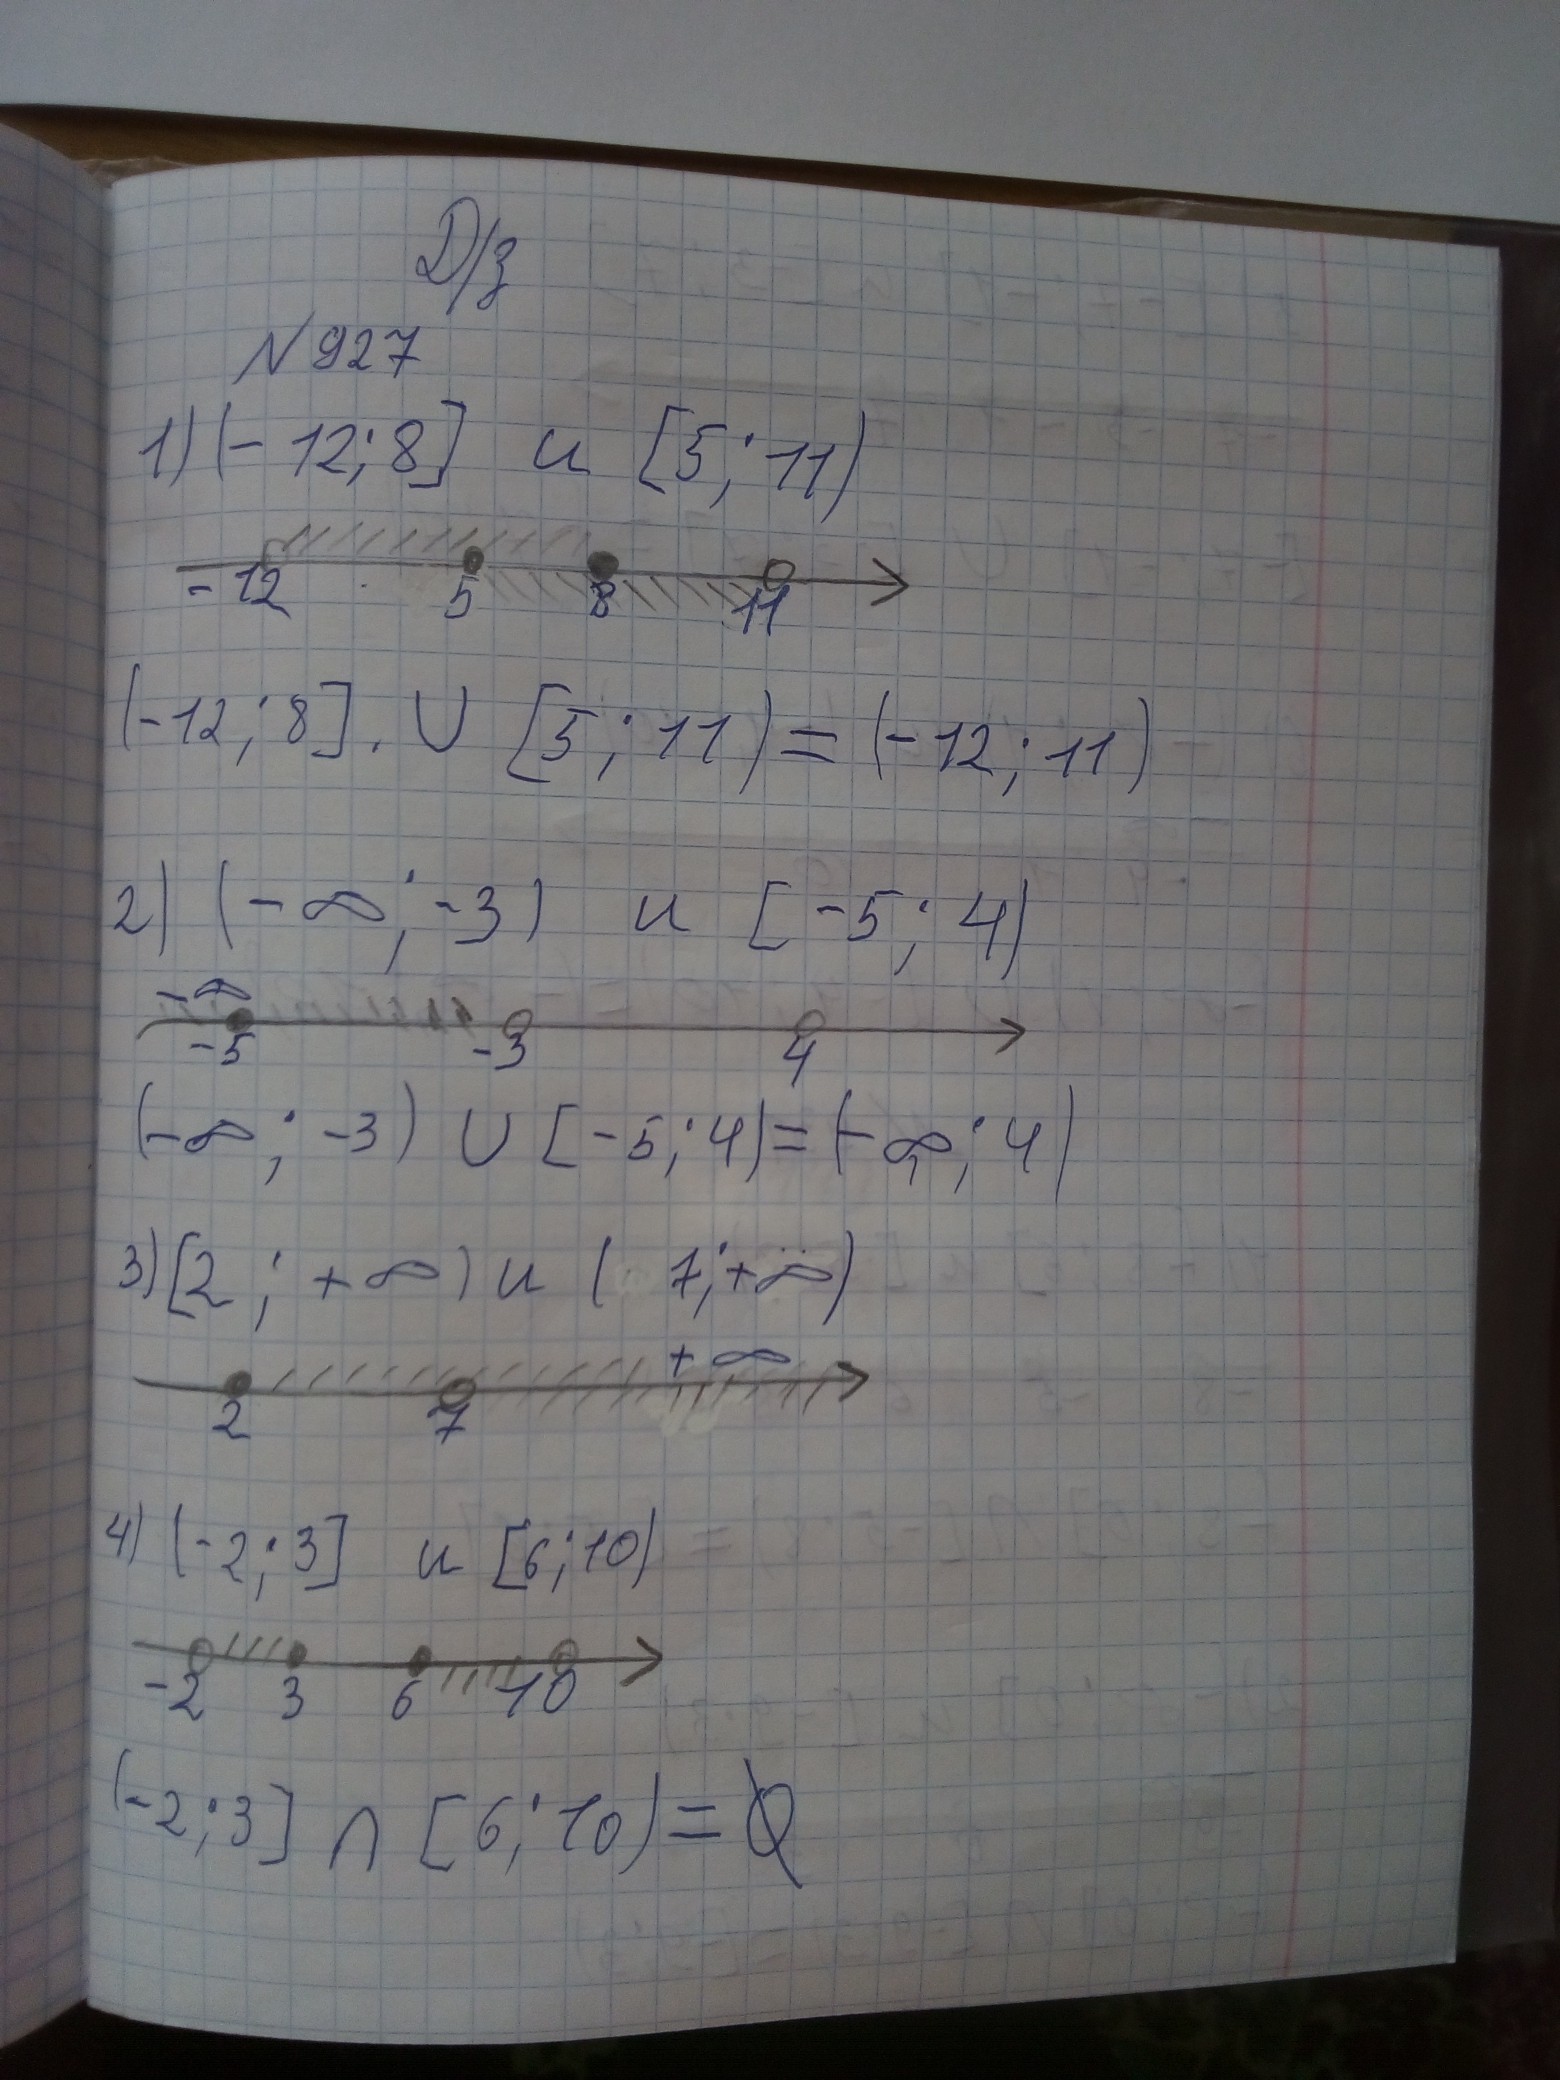 Д/з
N 927
1) (- 12; 8] и [5; 11)
- 12 5 8 11
(-12; 8]. ∪ [5; 11) = (-12; 11)
2) (- ∞; -3) и [-5; 4)
-∞
-5 -3 4
(-∞; -3) ∪ [-5; 4) = (-∞; 4)
3) [2; +∞) и ( 7; +∞)
+ ∞
2 7
4) (-2; 3] и [6; 10)
-2 3 6 10
(-2; 3] ∩ [6; 10) = ∅